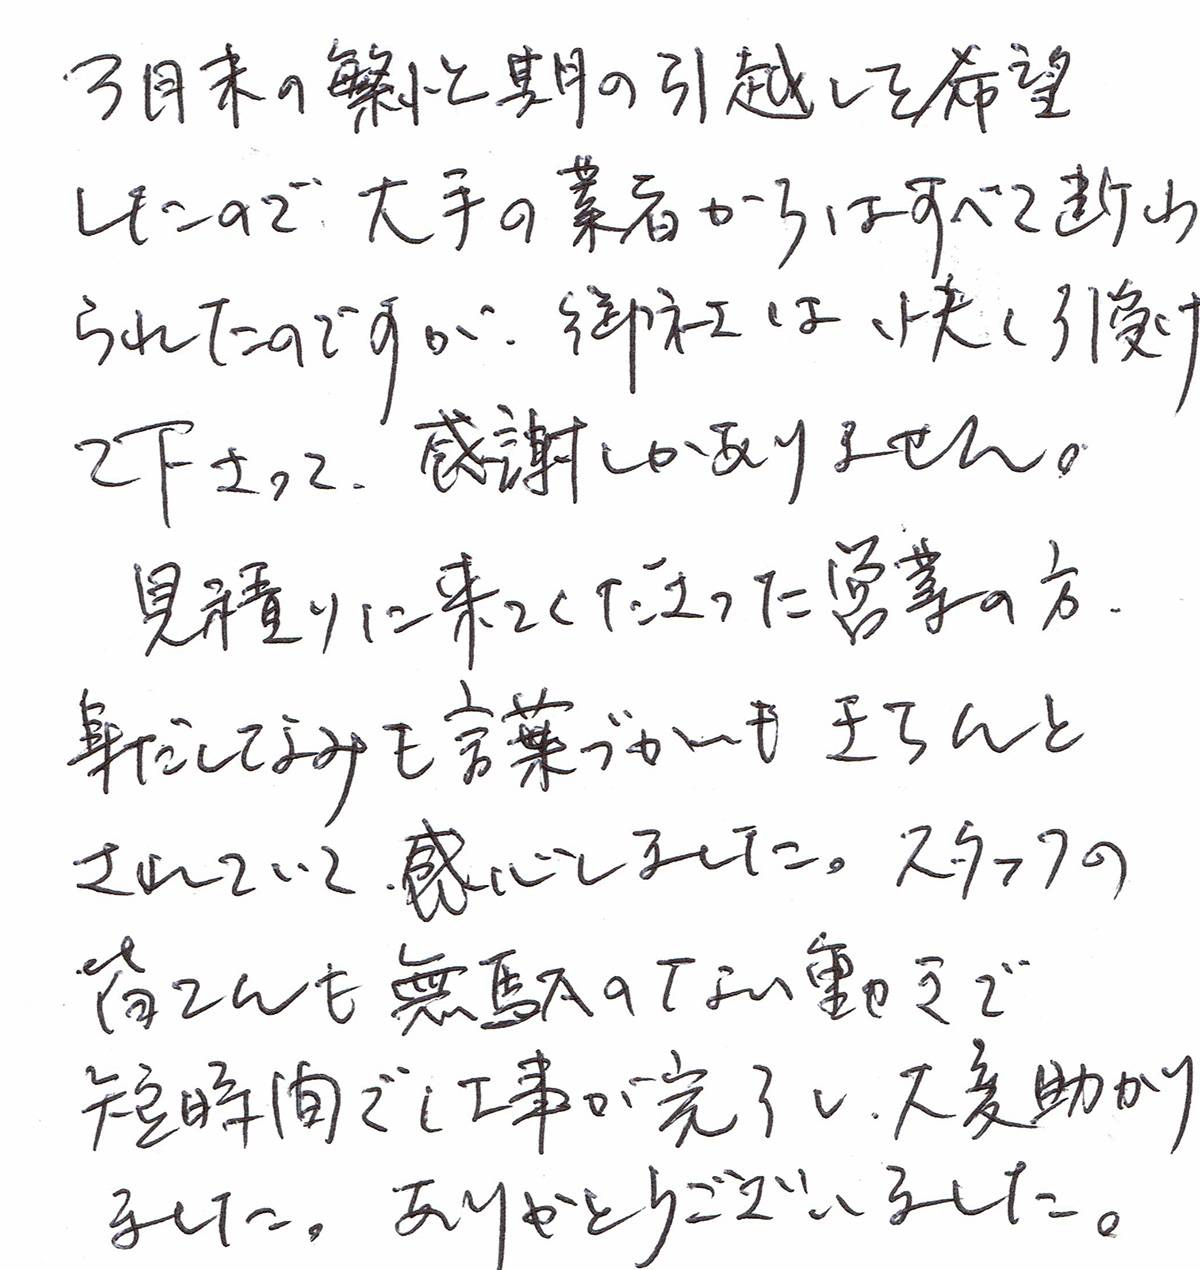 3月末の繁忙期の引越しを希望
したので、大手の業者からはすべて断わ
られたのですが、御社は快く引受け
て下さって、感謝しかありません。
見積りに来てくださった営業の方、
身だしなみも言葉づかいもきちんと
されていて、感心しました。スタッフの
皆さんも無駄のない動きで
短時間で工事が完了し、大変助かり
ました。ありがとうございました。